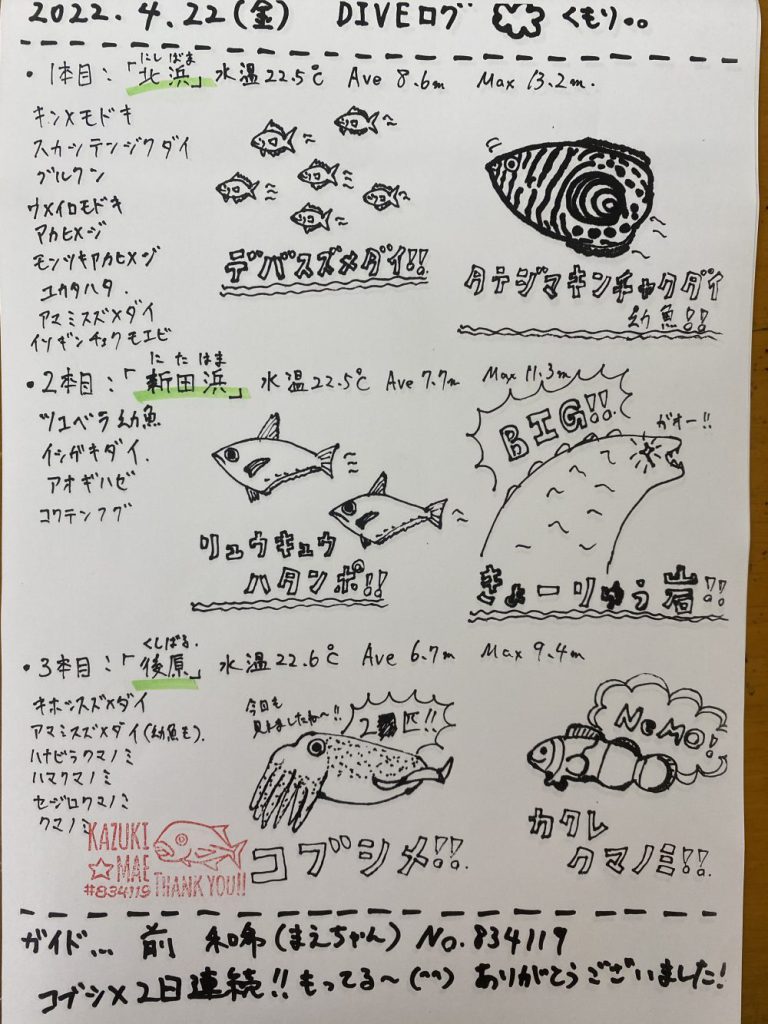 2022.4.22(金) DIVEログ くもり。。
にし ばま
・1本目:「北浜」水温22.5℃ Ave 8.6m Max 13.2m.
キンメモドキ
スカシテンジクダイ
グルクン
ウメイロモドキ
アカヒメジ
モンツキアカヒメジ
ユカタハタ.
アマミスズメダイ
イソギンチャクモエビ
デバスズメダイ!!
タテジマキンチャクダイ
幼魚!!
にたはま
・2本目:「新田浜」水温22.5℃ Ave 7.7m Max 11.3m
ツユベラ幼魚
イシガキダイ.
アオギハゼ
コクテンフグ
リュウキュウ
ハタンポ!!
BIG!!
ガオー!!
きょーりゅう岩!!
くしばる.
・3本目:「後原」水温22.6℃ Ave 6.7m Max 9.4m
キホシスズメダイ
アマミスズメダイ(幼魚も).
ハナビラクマノミ
ハマクマノミ
セジロクマノミ
クマノミ
今日も
見れましたね〜!!
2匹!!
コブシメ!!.
NeMO!
カクレ
クマノミ!!.
KAZUKI
MAE
#834119 THANK YOU!!
ガイド… 前 和希(まえちゃん) No.834119
コブシメ2日連続!!もってる〜(^^) ありがとうございました!